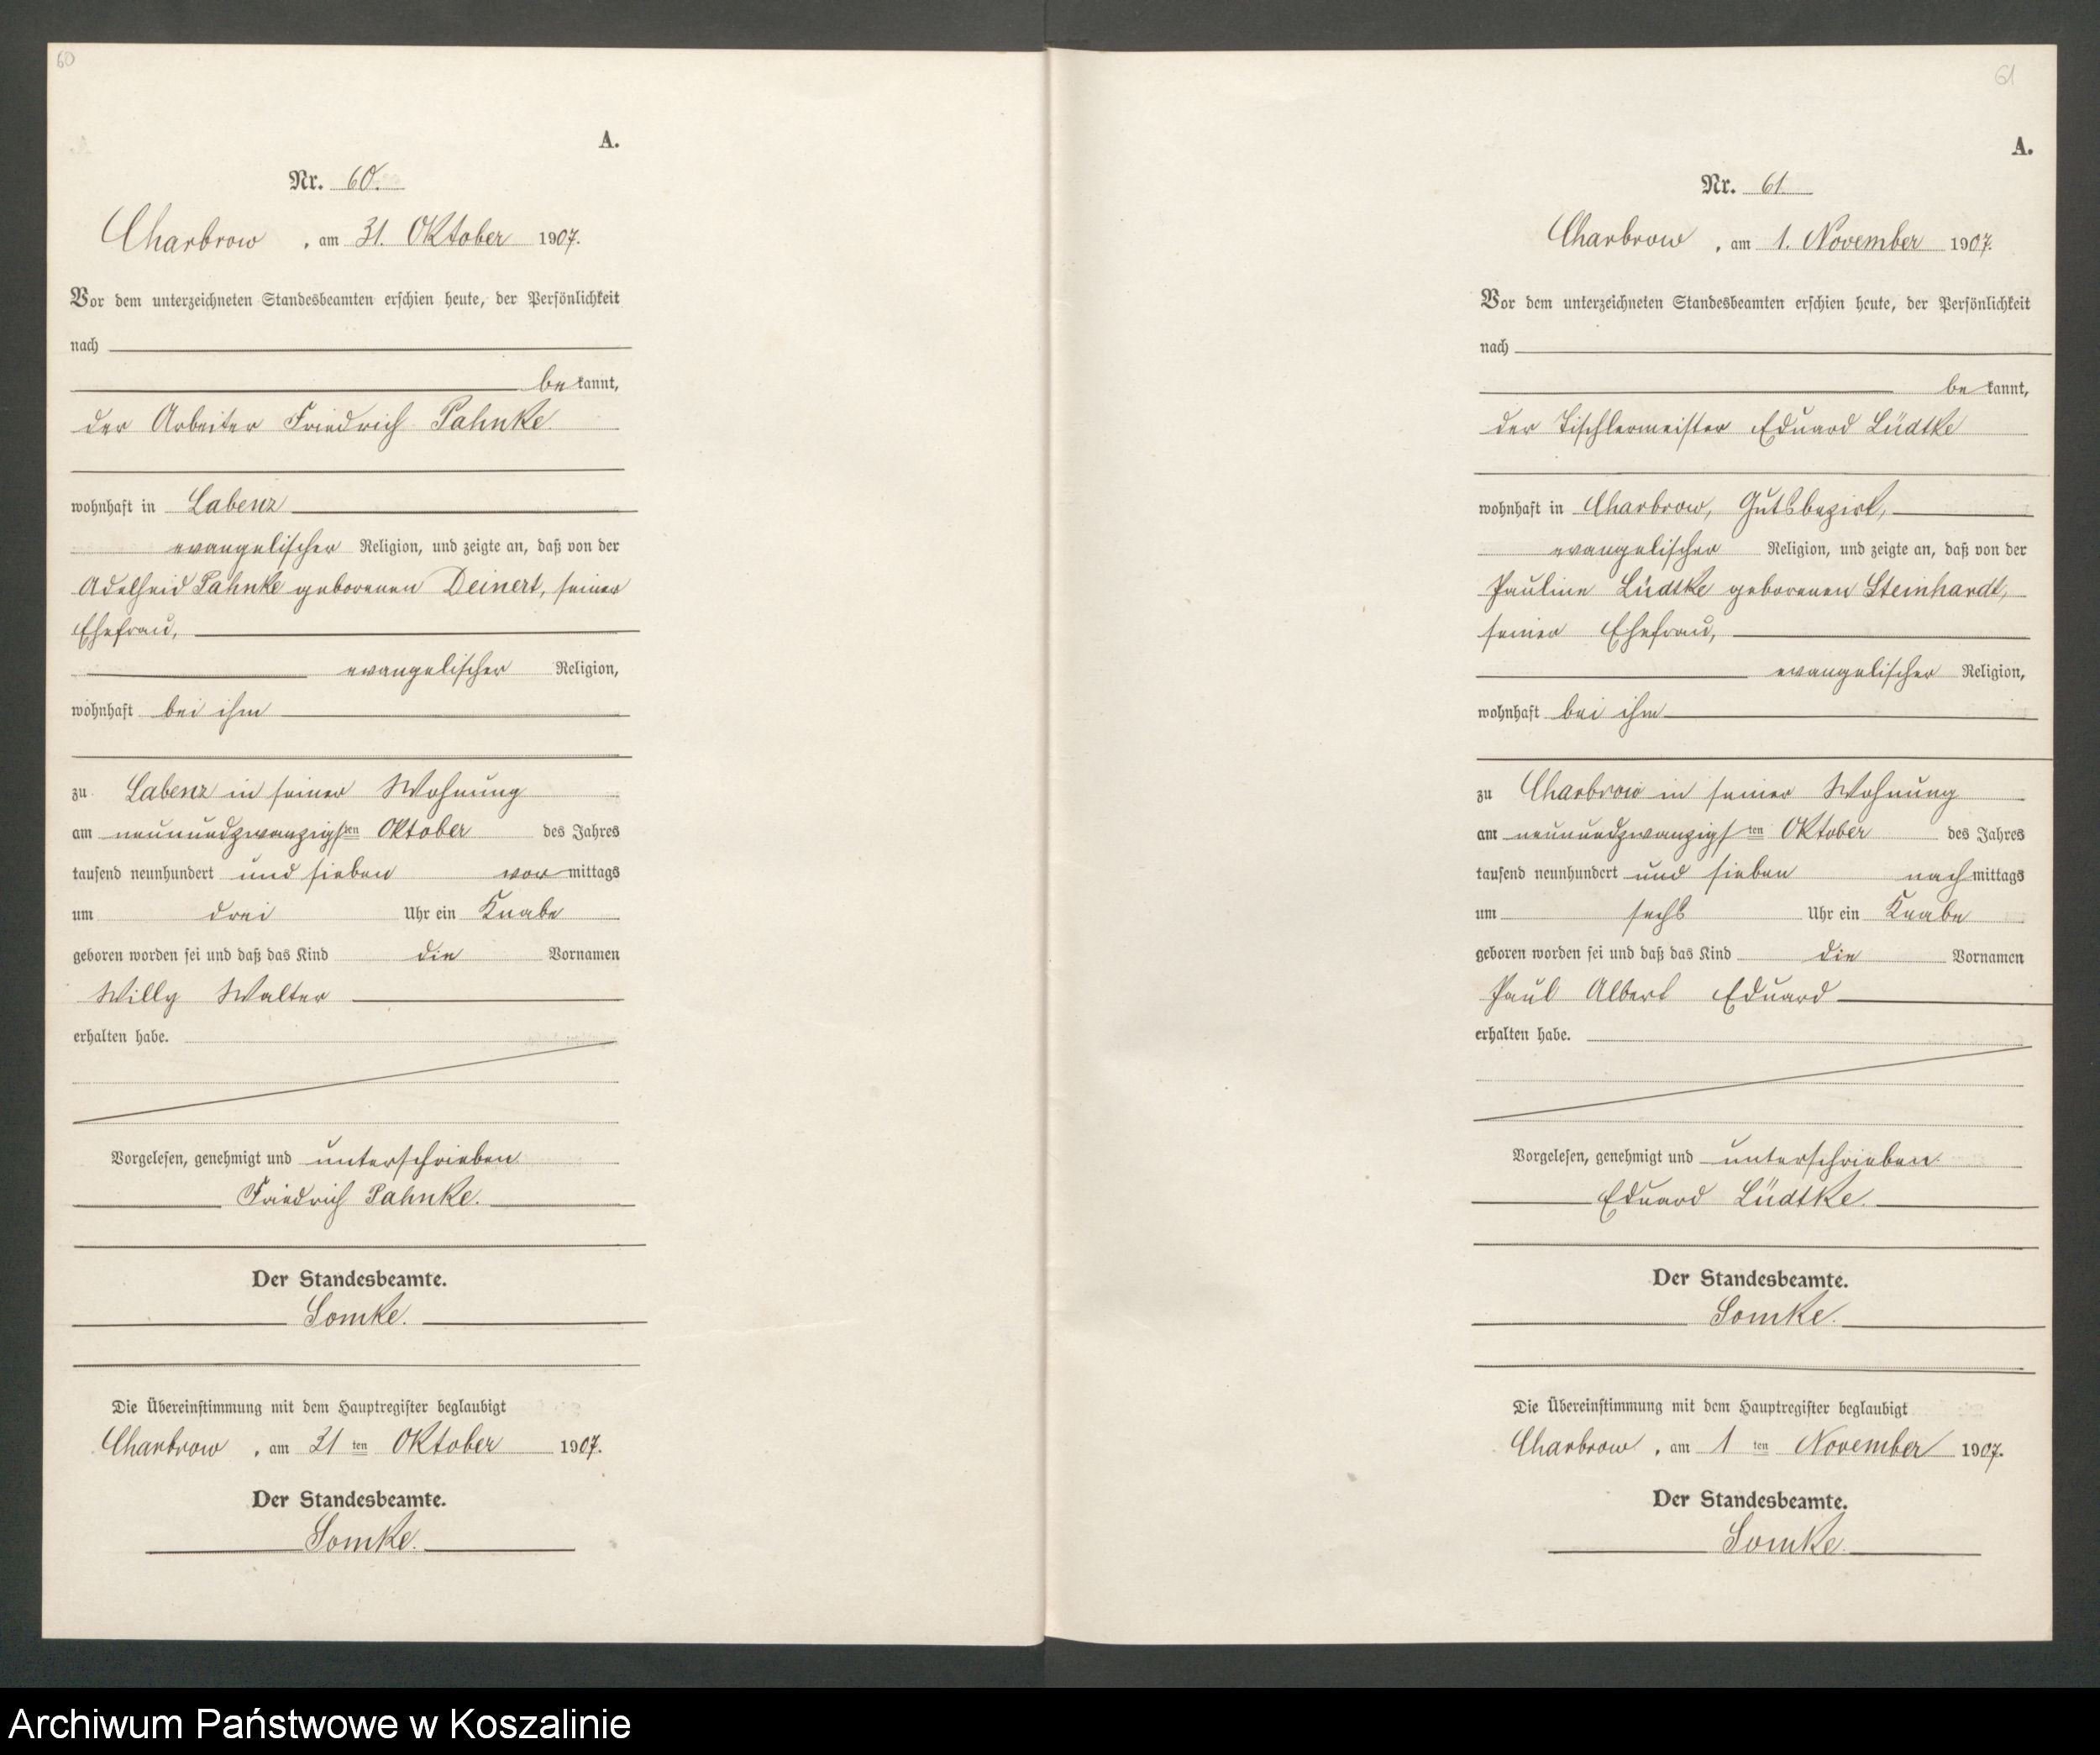 60
A.
Nr. 60.
Charbrow, am 31. Oktober 1907.
Vor dem unterzeichneten Standesbeamten erschien heute, der Persönlichkeit
nach
bekannt,
der Arbeiter Friedrich Pahnke
wohnhaft in Labenz
evangelischer Religion, und zeigte an, daß von der
Adelheid Pahnke geborenen Deinert, seiner
Ehefrau,
evangelischer Religion,
wohnhaft bei ihm
zu Labenz in seiner Wohnung
am neunundzwanzigsten Oktober des Jahres
tausend neunhundert und sieben vormittags
um drei Uhr ein Knabe
geboren worden sei und daß das Kind die Vornamen
Willy Walter
erhalten habe.
Vorgelesen, genehmigt und unterschrieben
Friedrich Pahnke.
Der Standesbeamte.
Somke.
Die Übereinstimmung mit dem Hauptregister beglaubigt
Charbrow, am 31ten Oktober 1907.
Der Standesbeamte.
Somke.
61
A.
Nr. 61
Charbrow, am 1. November 1907.
Vor dem unterzeichneten Standesbeamten erschien heute, der Persönlichkeit
nach
bekannt,
der Tischlermeister Eduard Lüdtke
wohnhaft in Charbrow, Gutsbezirk,
evangelischer Religion, und zeigte an, daß von der
Pauline Lüdtke geborenen Steinhardt,
seiner Ehefrau,
evangelischer Religion,
wohnhaft bei ihm
zu Charbrow in seiner Wohnung
am neunundzwanzigsten Oktober des Jahres
tausend neunhundert und sieben nachmittags
um sechs Uhr ein Knabe
geboren worden sei und daß das Kind die Vornamen
Paul Albert Eduard
erhalten habe.
Vorgelesen, genehmigt und unterschrieben.
Eduard Lüdtke.
Der Standesbeamte.
Somke.
Die Übereinstimmung mit dem Hauptregister beglaubigt
Charbrow, am 1ten November 1907.
Der Standesbeamte.
Somke.
Archiwum Państwowe w Koszalinie